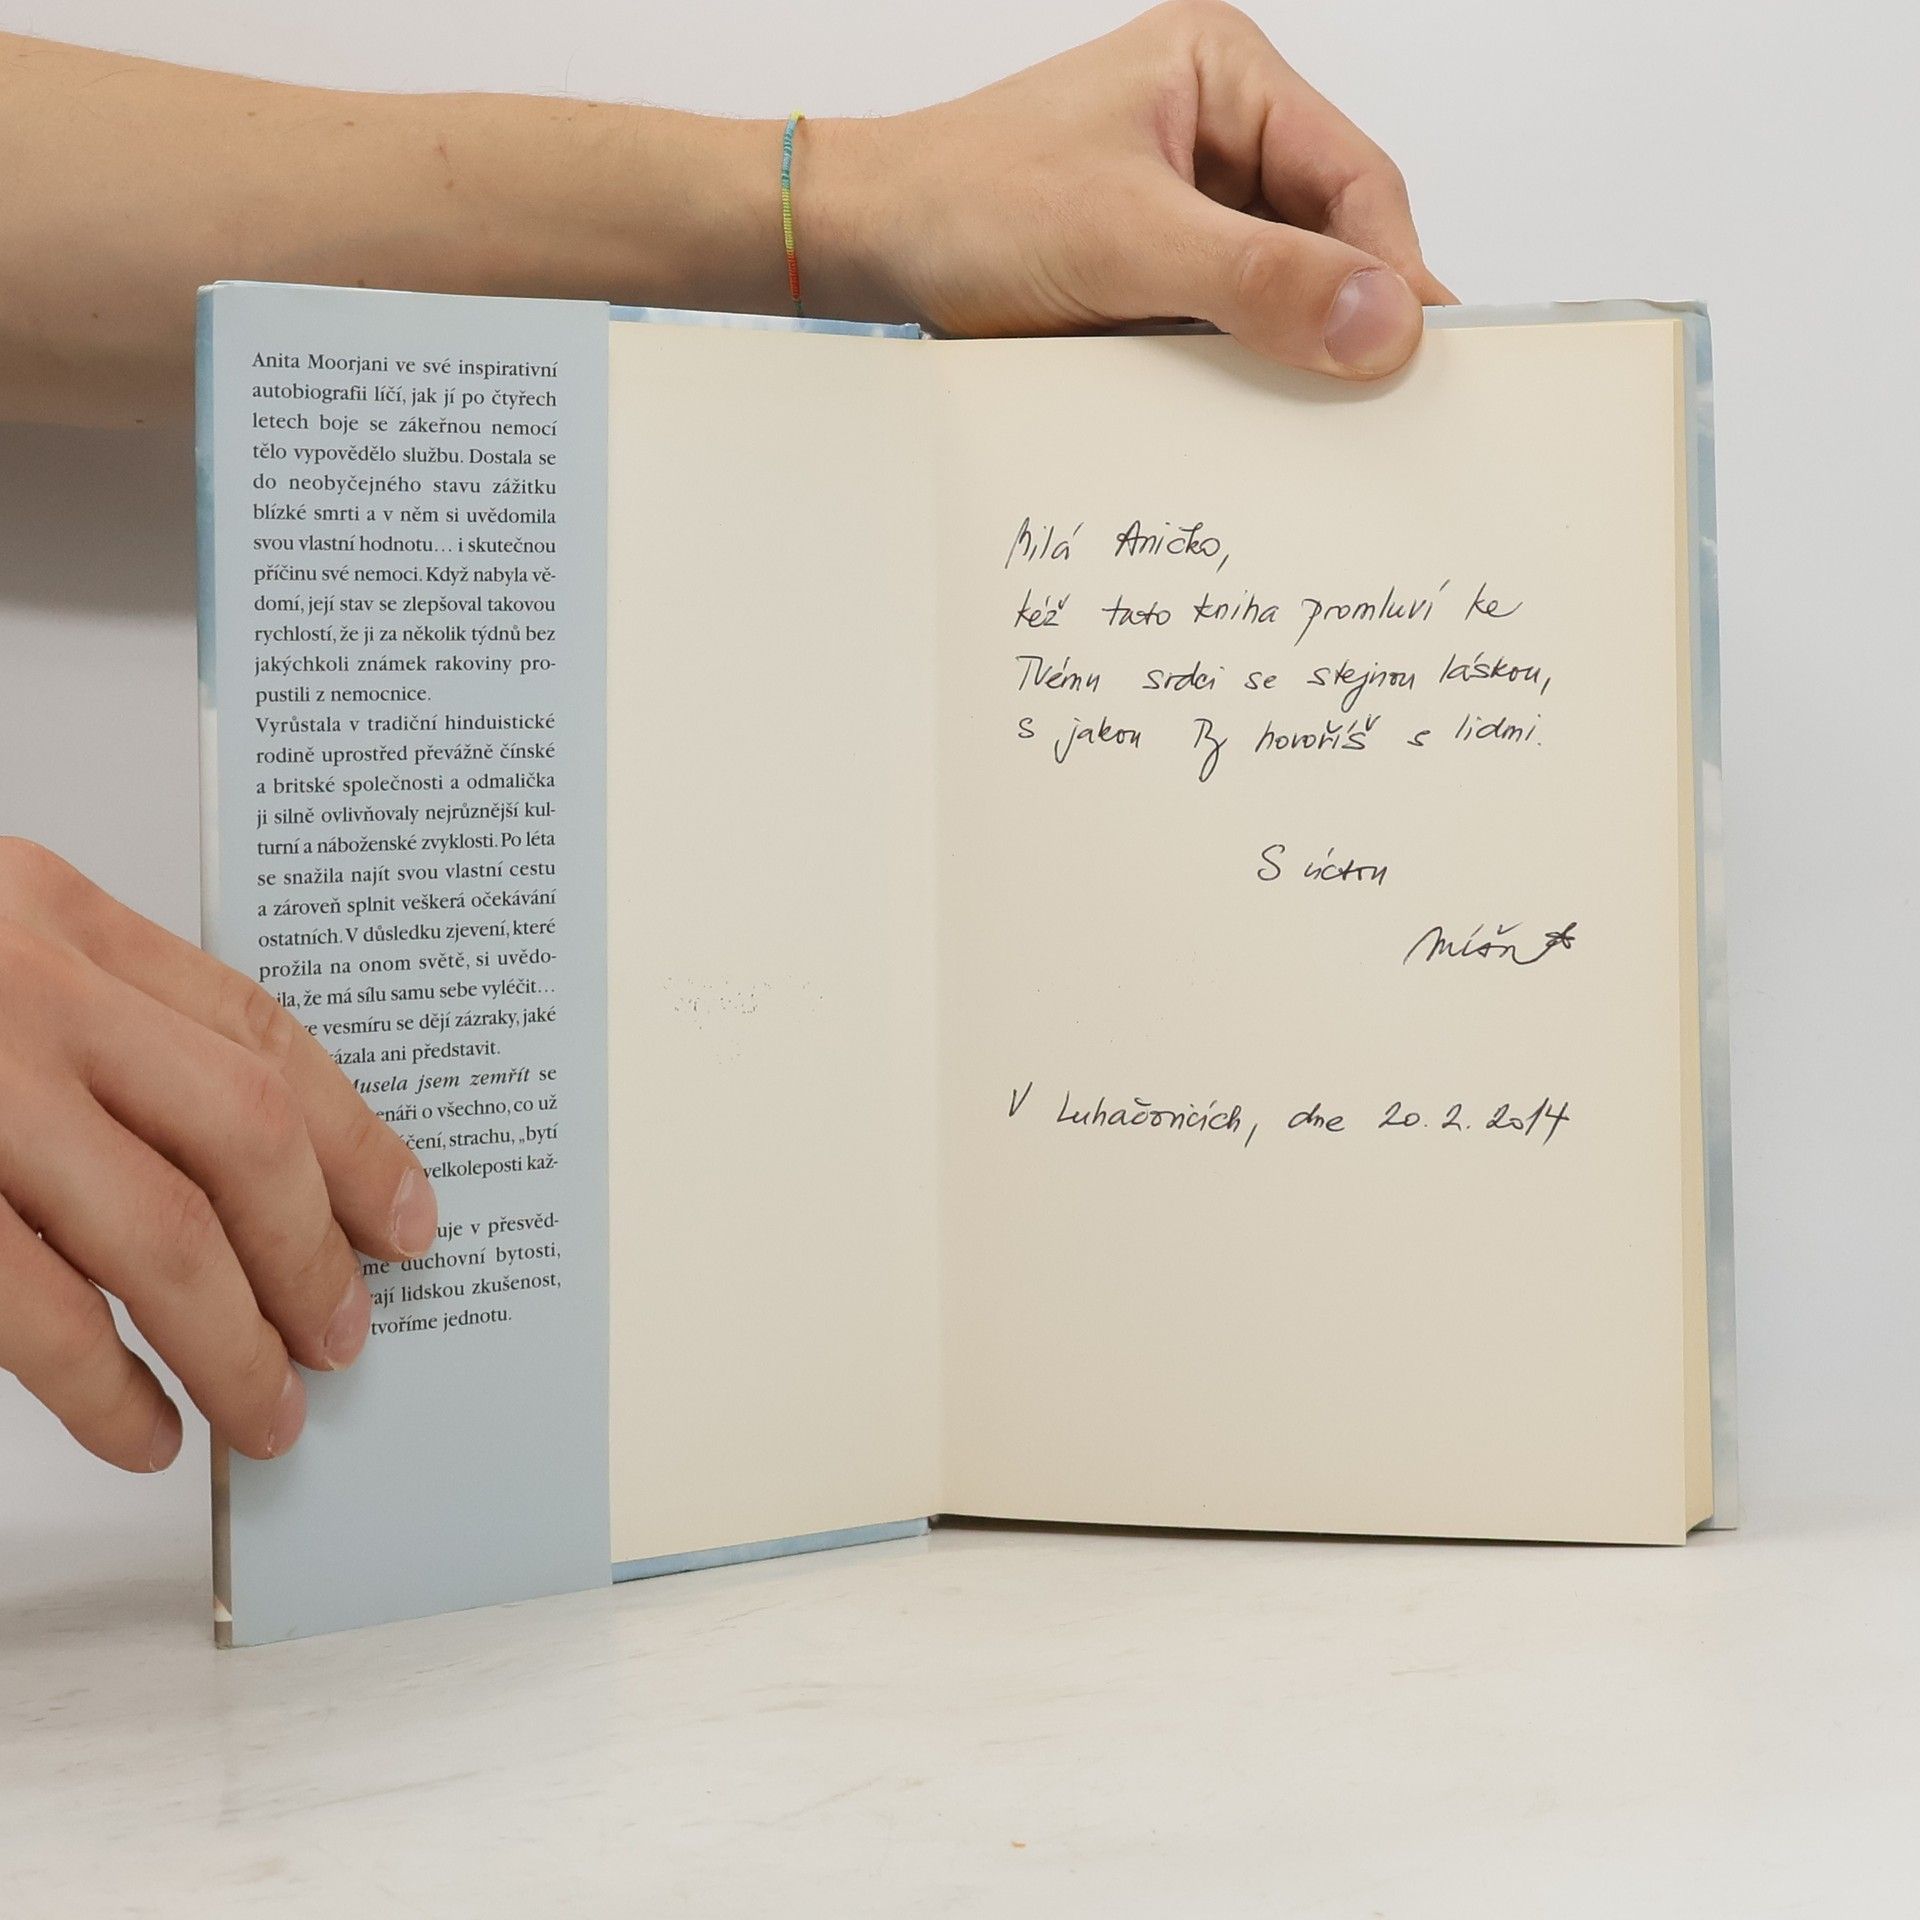 Anita Moorjani ve své inspirativní
autobiografii líčí, jak jí po čtyřech
letech boje se zákeřnou nemocí
tělo vypovědělo službu. Dostala se
do neobyčejného stavu zážitku
blízké smrti a v něm si uvědomila
svou vlastní hodnotu... i skutečnou
příčinu své nemoci. Když nabyla vě-
domí, její stav se zlepšoval takovou
rychlostí, že ji za několik týdnů bez
jakýchkoli známek rakoviny pro-
pustili z nemocnice.
Vyrůstala v tradiční hinduistické
rodině uprostřed převážně čínské
a britské společnosti a odmalička
ji silně ovlivňovaly nejrůznější kul-
turní a náboženské zvyklosti. Po léta
se snažila najít svou vlastní cestu
a zároveň splnit veškerá očekávání
ostatních. V důsledku zjevení, které
prožila na onom světě, si uvědo-
ila, že má sílu samu sebe vyléčit...
ve vesmíru se dějí zázraky, jaké
ázala ani představit.
Musela jsem zemřít se
enáři o všechno, co už
čení, strachu, „bytí
velkoleposti kaž-
uje v přesvěd-
me duchovní bytosti,
ají lidskou zkušenost,
tvoříme jednotu.
Milá Aničko,
kéž tato kniha promluví ke
Tvému srdci se stejnou láskou,
s jakou Ty hovoříš s lidmi.
S úctou
V Luhačovicích, dne 20. 2. 2014